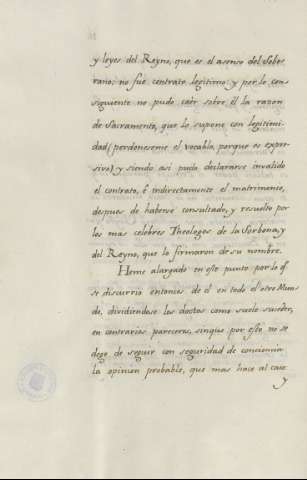 y leyes del Reyno, que es el asenso del Sobe
rano; no fué contrato legitimo: y por lo con
siguiente no pudo caér sobre él la razon
de Sacramento, que lo supone con legitimi
dad (perdoneseme el vocablo, porque es expre
sivo) y siendo asi pudo declararse invalido
el contrato, é indirectamente el matrimonio,
despues de haberse consultado, y resuelto por
los mas celebres Theologos de la Sorbona, y
del Reyno, que lo firmaron de su nombre.
Heme alargado en este punto por lo q.e
se discurrió entonces de él en todo el otro Mun
do, dividiendose los doctos como suele suceder,
en contrarios pareceres, sinque por esto se
deje de seguir con seguridad de conciencia
la opinion probable, que mas hace al caso
y